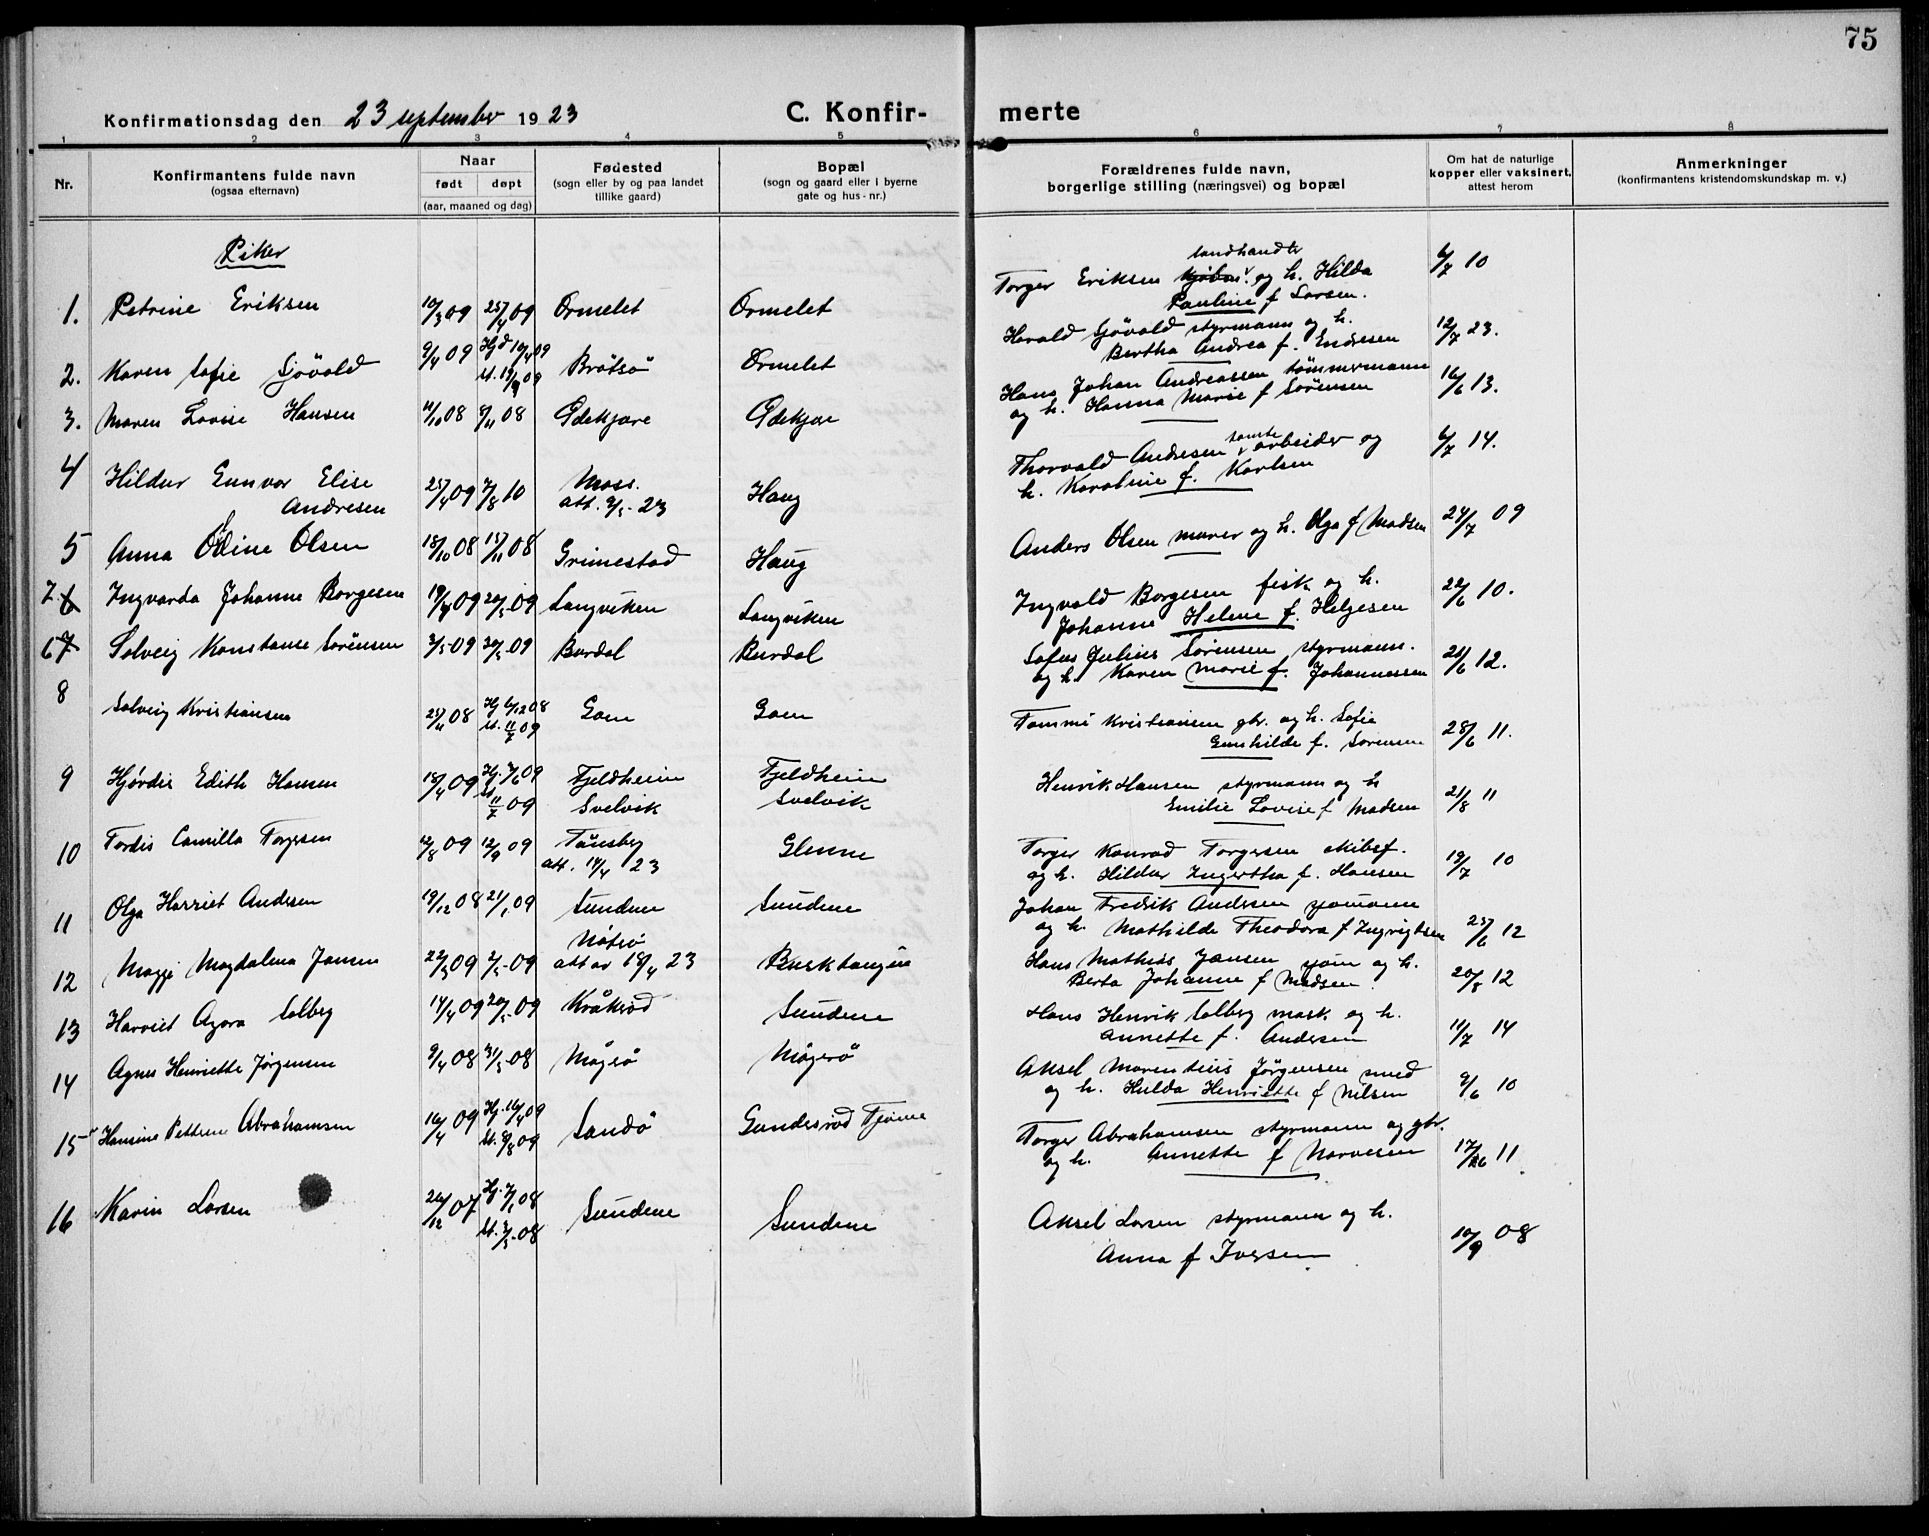 75
Konfirmationsdag den 23 september 1923
C. Konfir-
merte
1 2 3 4 5 6 7 8
Nr.
Konfirmantens fulde navn
(ogsaa efternavn)
Naar
født døpt
(aar, maaned og dag)
Fødested
(sogn eller by og paa landet
tillike gaard)
Bopæl
(sogn og gaard eller i byerne
gate og hus-nr.)
Forældrenes fulde navn,
borgerlige stilling (næringsvei) og bopæl
Om hat de naturlige
kopper eller vaksinert,
attest herom
Anmerkninger
(konfirmantens kristendomskundskap m. v.)
Piker
landhandler
1. Petrine Eriksen 10/3 09 25/4 09 Ormelet Ormelet Torger Eriksen og h. Hilda 6/7 10
Pauline f Larsen.
2. Karen Sofie Sjövold 9/4 09 Hjd 10/4 09 Brötsö Ormelet Harald Sjövold styrmann og h. 12/7 23.
Bertha Andrea f. Endresen
3. Maren Lovise Hansen 11/10 08 8/11 08 Ødekjære Ødekjær Hans Johan Andreassen tömmermann 16/6 13.
og h. Hanna Marie f Sörensen
4 Hildur Gunvor Elise 25/4 09 7/8 10 Moss. Haug Thorvald Andresen tomte arbeider og 6/7 14.
Andresen att. 9/5-23 h. Karoline f. Karlsen
5 Anna Odine Olsen 18/10 08 15/11 08 Grimestad Haug Anders Olsen murer og h. Olga f Madsen 24/7 09
7. 6 Ingvarda Johanne Borgesen 19/4 09 20/5-09 Langviken Langviken Ingvald Borgesen fisk og h. 22/6 10.
Johanne Helene f. Helgesen
6 7 Solveig Konstanse Sörensen 3/5-09 30/5-09 Burdal Burdal Sofus Julius Sörensen styrmann. 21/6 12.
og h. Karen Marie f. Johannessen
8 Solveig Kristiansen 25/11 08 Hj 6/12 08 Goen Goen Tommi Kristiansen gbr. og h. Sofie 28/6 11.
st. 11/7 09 Gunhilde f. Sörensen
9 Hjördis Edith Hansen 18/4 09 Hj. 7/6 09 Fjeldheim Fjeldheim Henrik Hansen styrmann og h 21/8 11
st 11/7 09 Svelvik Svelvik Emilie Lovise f Madsen
10 Tordis Camilla Torgersen 12/8 09 12/9 09 Tönsberg Glenne Torger Konrad Torgersen skibsf. 19/7 10
att. 14/4 23 og h. Hildur Ingertha f. Hansen
11 Olga Harriet Andersen 19/12 08 21/1 09 Sundene Sundene Johan Fredrik Andersen sjömann
og h. Mathilde Theodora f Ingvigtsen 25/6 12
12 Maggi Magdalena Jansen 22/3 09 2/5-09 Nötrö Busktangen Hans Mathias Jansen sjöm og h.
att av 18/4 23 Berta Johanne f Madsen 20/8 12
13 Harriet Agora Solberg 14/4 09 20/5-09 Kråkröd Sundene Hans Henrik Solberg mask og h.
Annette f. Andersen 11/7 14
14 Agnes Henriette Jörgensen 9/4 08 31/5 08 Mågerö Mågerö Aksel Marentius Jörgensen smed
og h. Hulda Henriette f Nilsen 9/6 10
15 Hansine Petrine Abrahamsen 16/4 09 Hj. 16/4 09 Sandö Gundersröd Tjöme Torger Abrahamsen styrmann og gbr.
st. 8/8 09 og h. Annette f Narvesen 17/6 11
16 Karin Larsen 26/12 07 Hj. 7/1 08 Sundene Sundene Aksel Larsen styrmann og h.
st. 3/5-08 Anna f Iversen 10/9 08